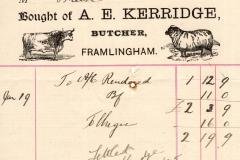 Bought of A. E. KERRIDGE,
BUTCHER,
FRAMLINGHAM.
To A/c Rendered 1 12 9
Jan 19 Bf 11 0
£ 2 3 9
16 0
2 19 9
Settled